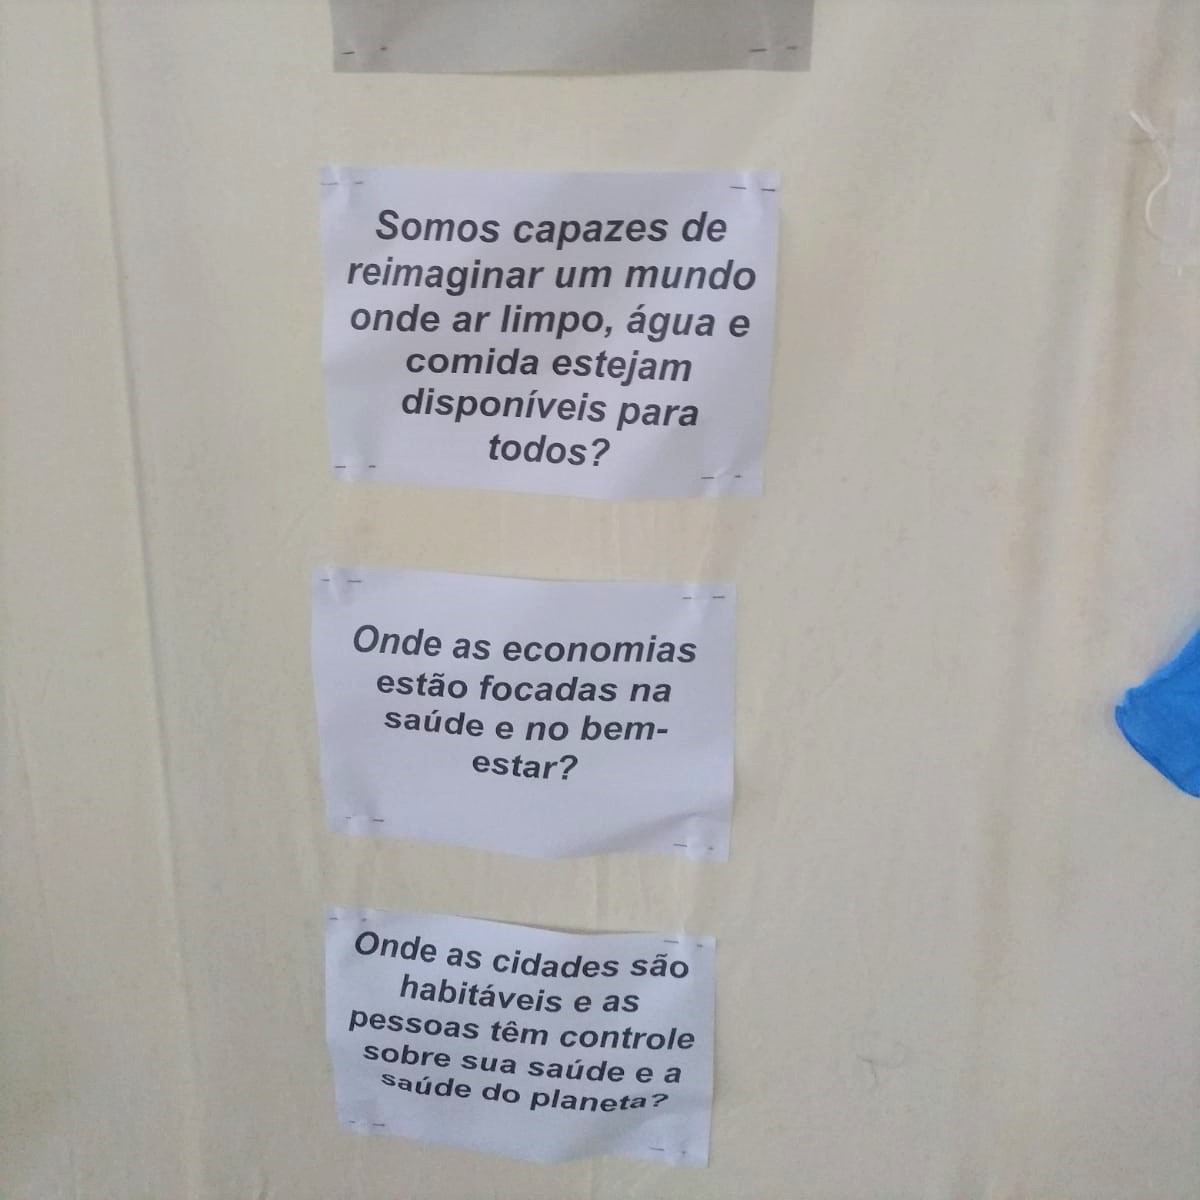 Somos capazes de
reimaginar um mundo
onde ar limpo, água e
comida estejam
disponíveis para
todos?
Onde as economias
estão focadas na
saúde e no bem-
estar?
Onde as cidades são
habitáveis e as
pessoas têm controle
sobre sua saúde e a
saúde do planeta?